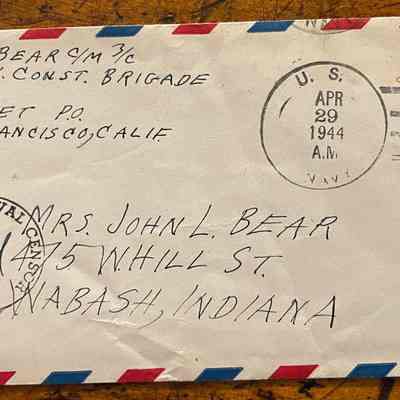 BEAR C/M 3/C
. CONST. BRIGADE
ET P.O.
ANCISCO, CALIF.
U. S.
APR
29
1944
A.M.
NAVY
MRS. JOHN L. BEAR
475 W. HILL ST.
WABASH, INDIANA